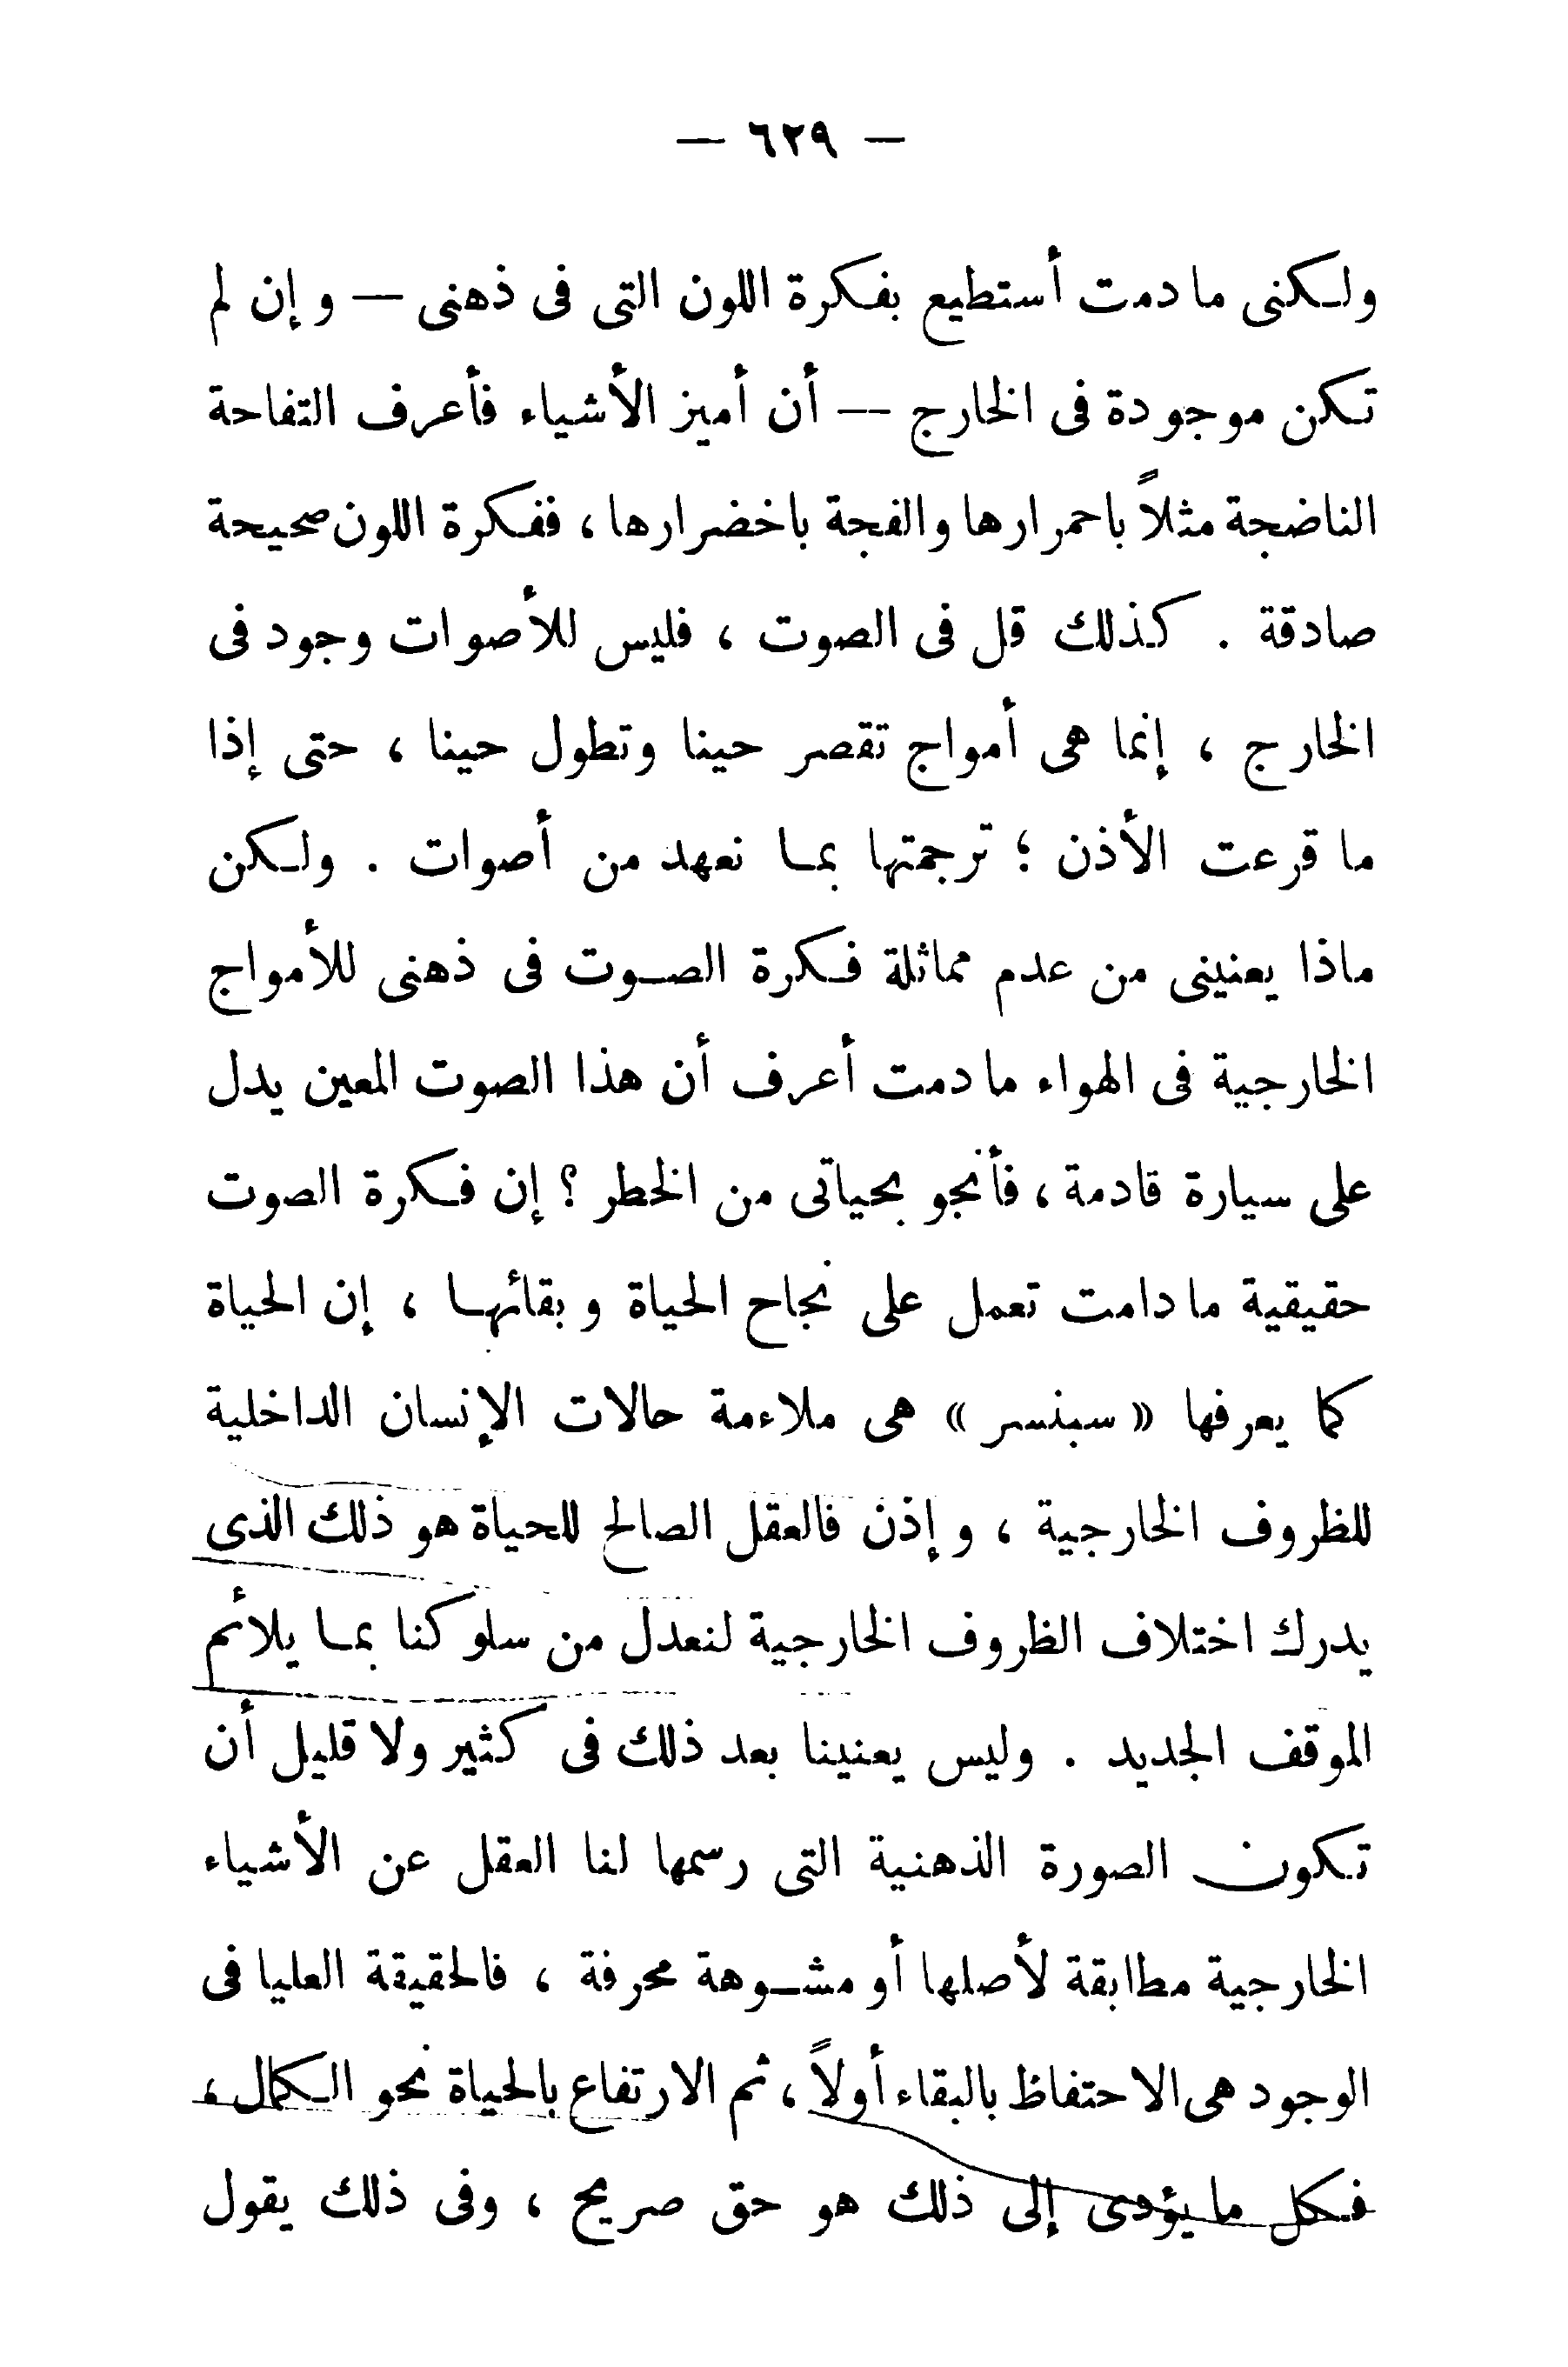 — ٦٢٩ —
ولكنى ما دمت أستطيع بفكرة اللون التى فى ذهنى — وإن لم
تكن موجودة فى الخارج — أن أميز الأشياء فأعرف التفاحة
الناضجة مثلاً باحمرارها والفجة باخضرارها ، ففكرة اللون صحيحة
صادقة . كذلك قل فى الصوت ، فليس للأصوات وجود فى
الخارج ، إنما هى أمواج تقصر حينا وتطول حينا ، حتى إذا
ما قرعت الأذن ؛ ترجمتها بما نعهد من أصوات . ولكن
ماذا يعنينى من عدم مماثلة فكرة الصوت فى ذهنى للأمواج
الخارجية فى الهواء ما دمت أعرف أن هذا الصوت المعين يدل
على سيارة قادمة ، فأنجو بحياتى من الخطر ؟ إن فكرة الصوت
حقيقية ما دامت تعمل على نجاح الحياة وبقائها ، إن الحياة
كما يعرفها « سبنسر » هى ملاءمة حالات الإنسان الداخلية
للظروف الخارجية ، وإذن فالعقل الصالح للحياة هو ذلك الذى
يدرك اختلاف الظروف الخارجية لنعدل من سلوكنا بما يلائم
الموقف الجديد . وليس يعنينا بعد ذلك فى كثير ولا قليل أن
تكون الصورة الذهنية التى رسمها لنا العقل عن الأشياء
الخارجية مطابقة لأصلها أو مشوهة محرفة ، فالحقيقة العليا فى
الوجود هى الاحتفاظ بالبقاء أولاً ، ثم الارتفاع بالحياة نحو الكمال ،
فكل ما يؤدى إلى ذلك هو حق صريح ، وفى ذلك يقول